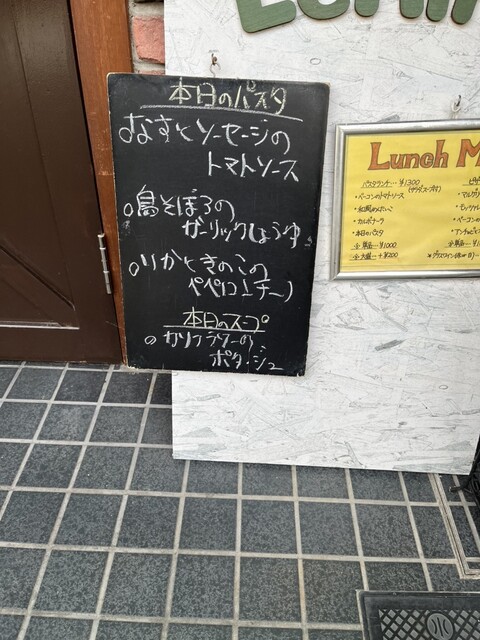 本日のパスタ
○なすとソーセージの
トマトソース
○鳥そぼろの
ガーリックしょうゆ
○いかときのこの
ペペロンチーノ
本日のスープ
○カリフラワーの
ポタージュ
Lunch M
パスタランチ… ¥1300
(サラダ・スープ付)
・ベーコンのトマトソース
・和風めんたいこ
・カルボナーラ
・本日のパスタ
☆単品… ¥1000
☆大盛… +¥200
ピザ
・マルゲリ
・モッツァレ
・ベーコンの
・アンチョビ
☆単品…¥1